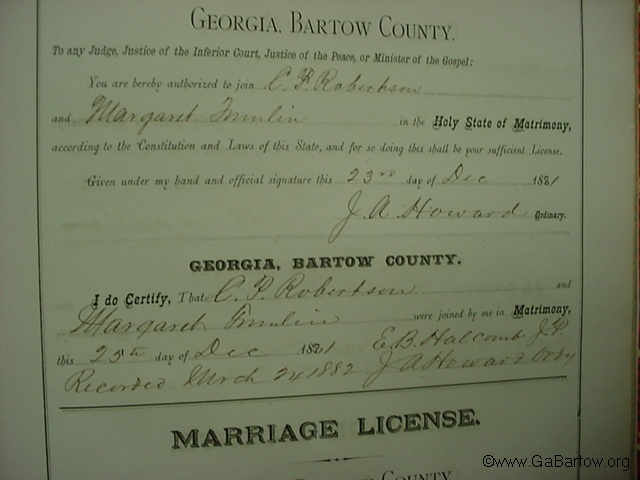 GEORGIA, BARTOW COUNTY.
To any Judge, Justice of the Inferior Court, Justice of the Peace, or Minister of the Gospel:
You are hereby authorized to join C. F. Robertson
and Margaret Tumlin in the Holy State of Matrimony,
according to the Constitution and Laws of this State, and for so doing this shall be your sufficient License.
Given under my hand and official signature this 23rd day of Dec 1881
J A Howard Ordinary.
GEORGIA, BARTOW COUNTY.
I do Certify, That C. F. Robertson and
Margaret Tumlin were joined by me in Matrimony,
this 25th day of Dec 1881 E. B. Halcomb J. P.
Recorded Mrch 24 1882 J A Howard Ordy
MARRIAGE LICENSE.
COUNTY
©www.GaBartow.org